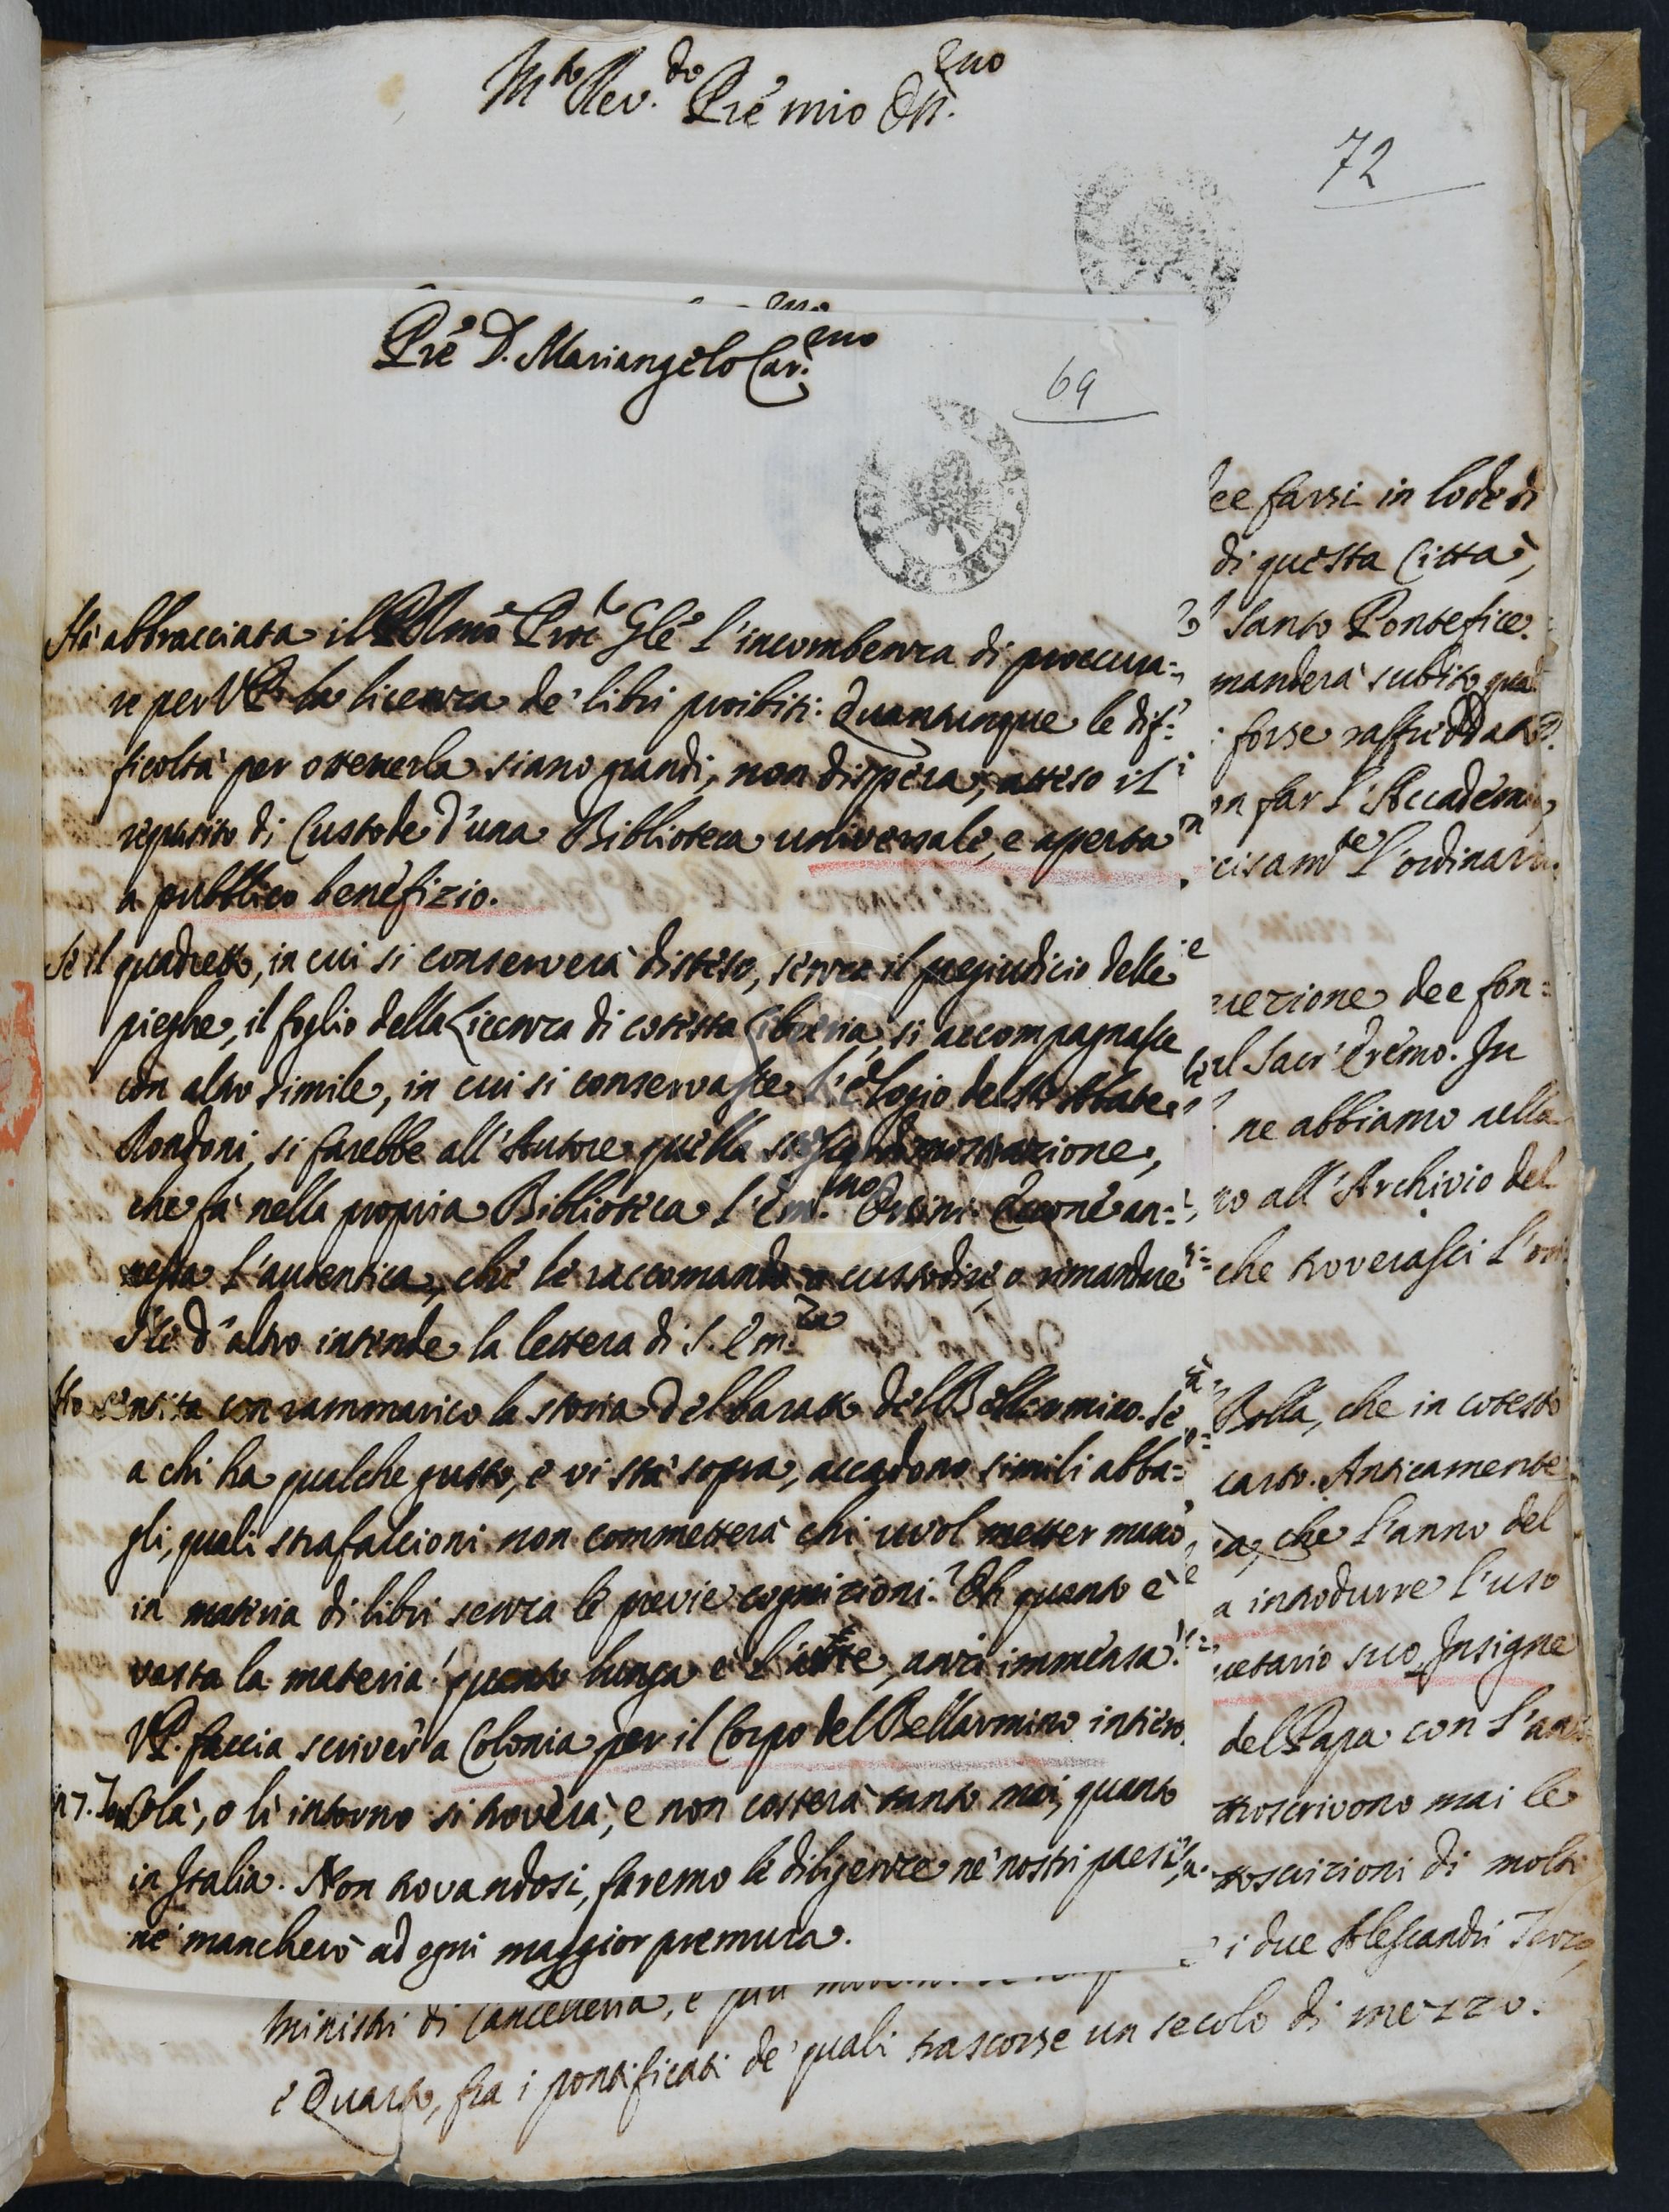 M.to Rev.do Pre mio Oss.mo
72
Pre D. Mariangelo Car.mo
69
Hà abbracciata il P. Rmo Proc Gle l'incombenza di proccura=
re per V.P. la licenza de' libri proibiti. Quantunque le dif=
ficoltà per ottenerla siano grandi, non dispera, atteso il
requisito di Custode d'una Biblioteca universale, e aperta
a pubblico benefizio.
Se il quadretto, in cui si conserverà disteso, senza il pregiudicio delle
pieghe, il foglio della Licenza di cotesta Libreria, si accompagnasse
con altro simile, in cui si conservasse l'Elogio del Sr Abate
Rondoni, si farebbe all'Autore quella dimostrazione,
che fa nella propria Biblioteca l'Em.mo Orsini. Eccone an=
nessa l'autentica, che le raccomando o custodire, o rimandare
Nè d'altro intende la lettera di S. Em.za
Ho sentita con rammarico la storia del baratto del Bellarmino. Se
a chi ha qualche gusto, e vi stà sopra, accadono simili abba=
gli, quali strafalcioni non commetterà chi vuol metter mano
in materia di libri senza le previe cognizioni? Oh quanto è
vasta la materia! quanto lunga è l'arte, anzi immensa!
V.P. faccia scriver' a Colonia per il Corpo del Bellarmino intiero.
Colà, o lì intorno si troverà, e non costerà tanto mai, quanto
in Italia. Non trovandosi, faremo le diligenze ne' nostri paesi,
nè mancherò ad ogni maggior premura.
dee farsi in lode di
di questa Città,
Santo Pontefice.
manderà subito
forse raffreddat
far l'Accademia
cisamte l'ordinario
dee fon=
al Sacr' Eremo. In
ne abbiamo nella
all'Archivio del
che troverassi l'ori
Bolla, che in cotesto
carto. Anticamente
che l'anno del
a introdurre l'uso
cretario suo Insigne
del Papa con l'an
ttoscrivono mai le
ttoscrizioni di molti
i due Alessandri Terzo,
ministri di Cancelleria, e più
e Quarto, fra i pontificati de' quali trascorse un secolo di mezzo.